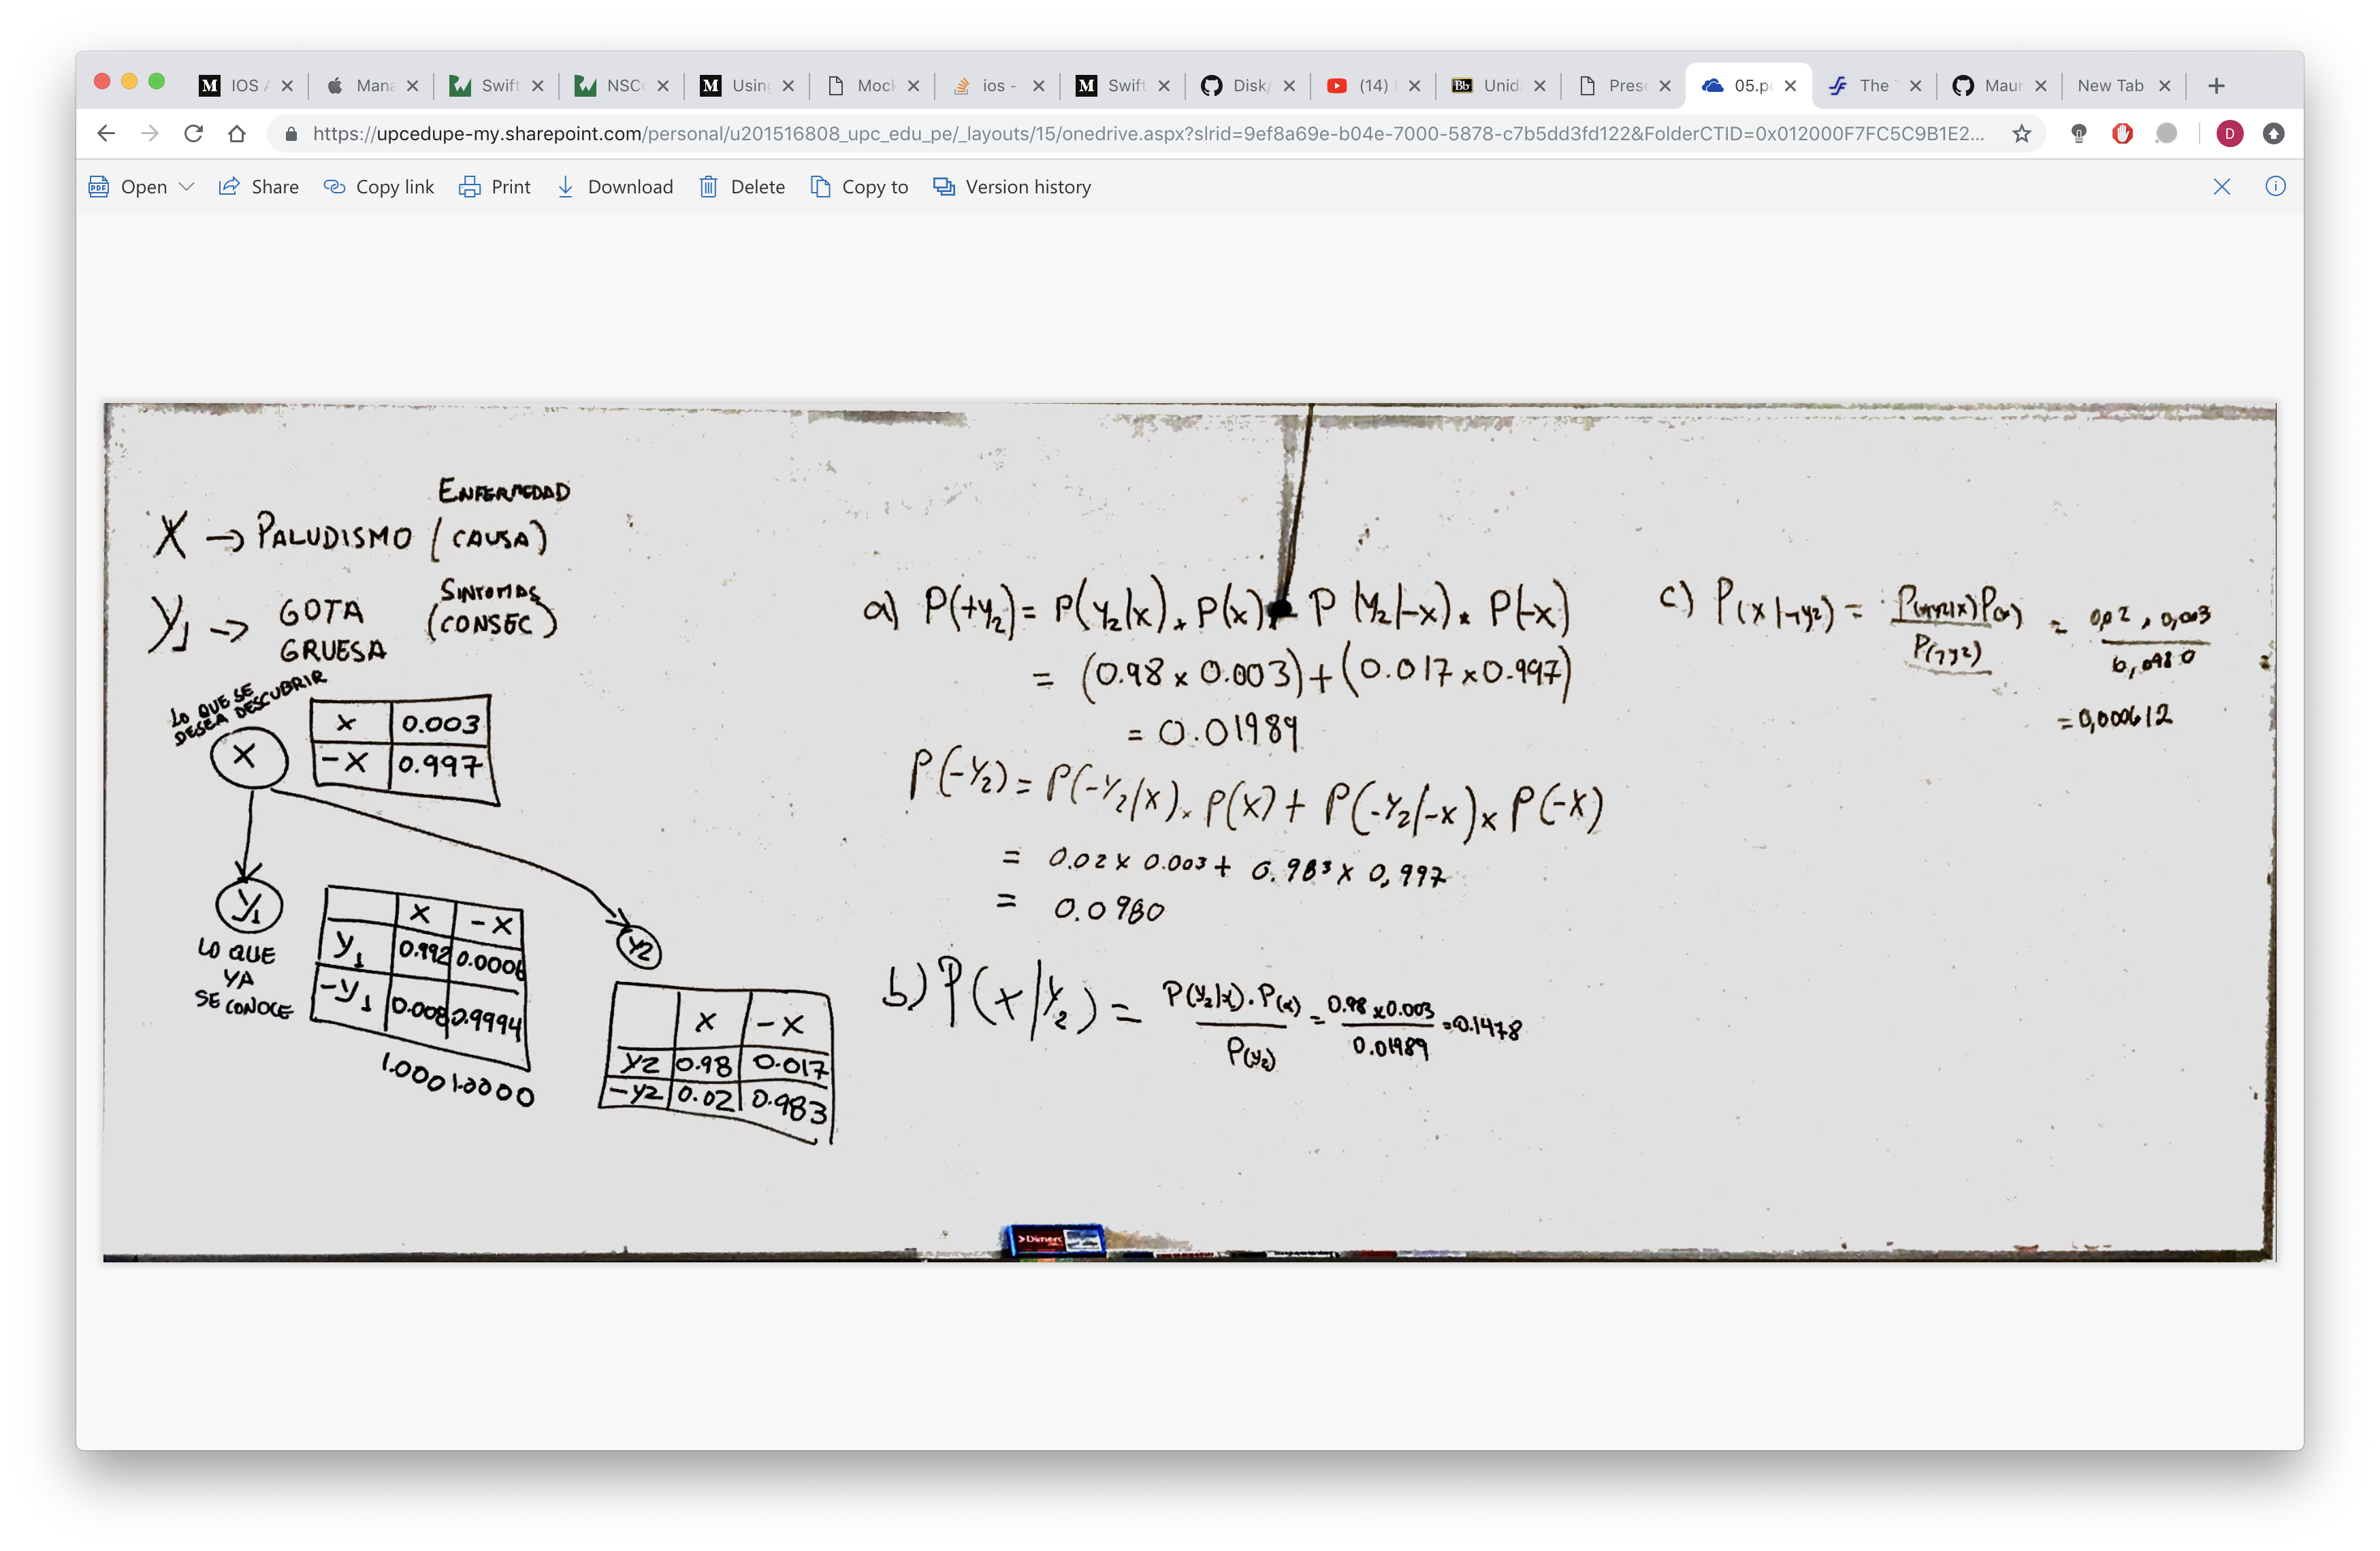 IOS A
Mana
Swift
NSCo
Using
Mock
ios -
Swift
Disk/
(14)
Bb Unid
Prese
05.pc
The
Maur
New Tab
https://upcedupe-my.sharepoint.com/personal/u201516808_upc_edu_pe/_layouts/15/onedrive.aspx?slrid=9ef8a69e-b04e-7000-5878-c7b5dd3fd122&FolderCTID=0x012000F7FC5C9B1E2...
D
PDF Open Share Copy link Print Download Delete Copy to Version history
ENFERMEDAD
X → PALUDISMO (CAUSA)
SINTOMAS
Y1 → GOTA GRUESA (CONSEC)
LO QUE SE
DESEA DESCUBRIR
X
x 0.003
-x 0.997
Y1
LO QUE
YA
SE CONOCE
x -x
Y1 0.992 0.0006
-Y1 0.008 0.9994
1.000 1.0000
Y2
x -x
Y2 0.98 0.017
-Y2 0.02 0.983
a) P(+Y2) = P(Y2|x) * P(x) + P(Y2|-x) * P(-x)
= (0.98 x 0.003) + (0.017 x 0.997)
= 0.01989
P(-Y2) = P(-Y2/x) x P(x) + P(-Y2/-x) x P(-x)
= 0.02 x 0.003 + 0.983 x 0,997
= 0.0980
b) P(x/Y2) = P(Y2|x) . P(x) / P(Y2) = 0.98 x 0.003 / 0.01989 = 0.1478
c) P(x|¬y2) = P(¬y2|x) P(x) / P(¬y2) = 0,02 * 0,003 / 0,0980 =
= 0,000612
>Dimerc